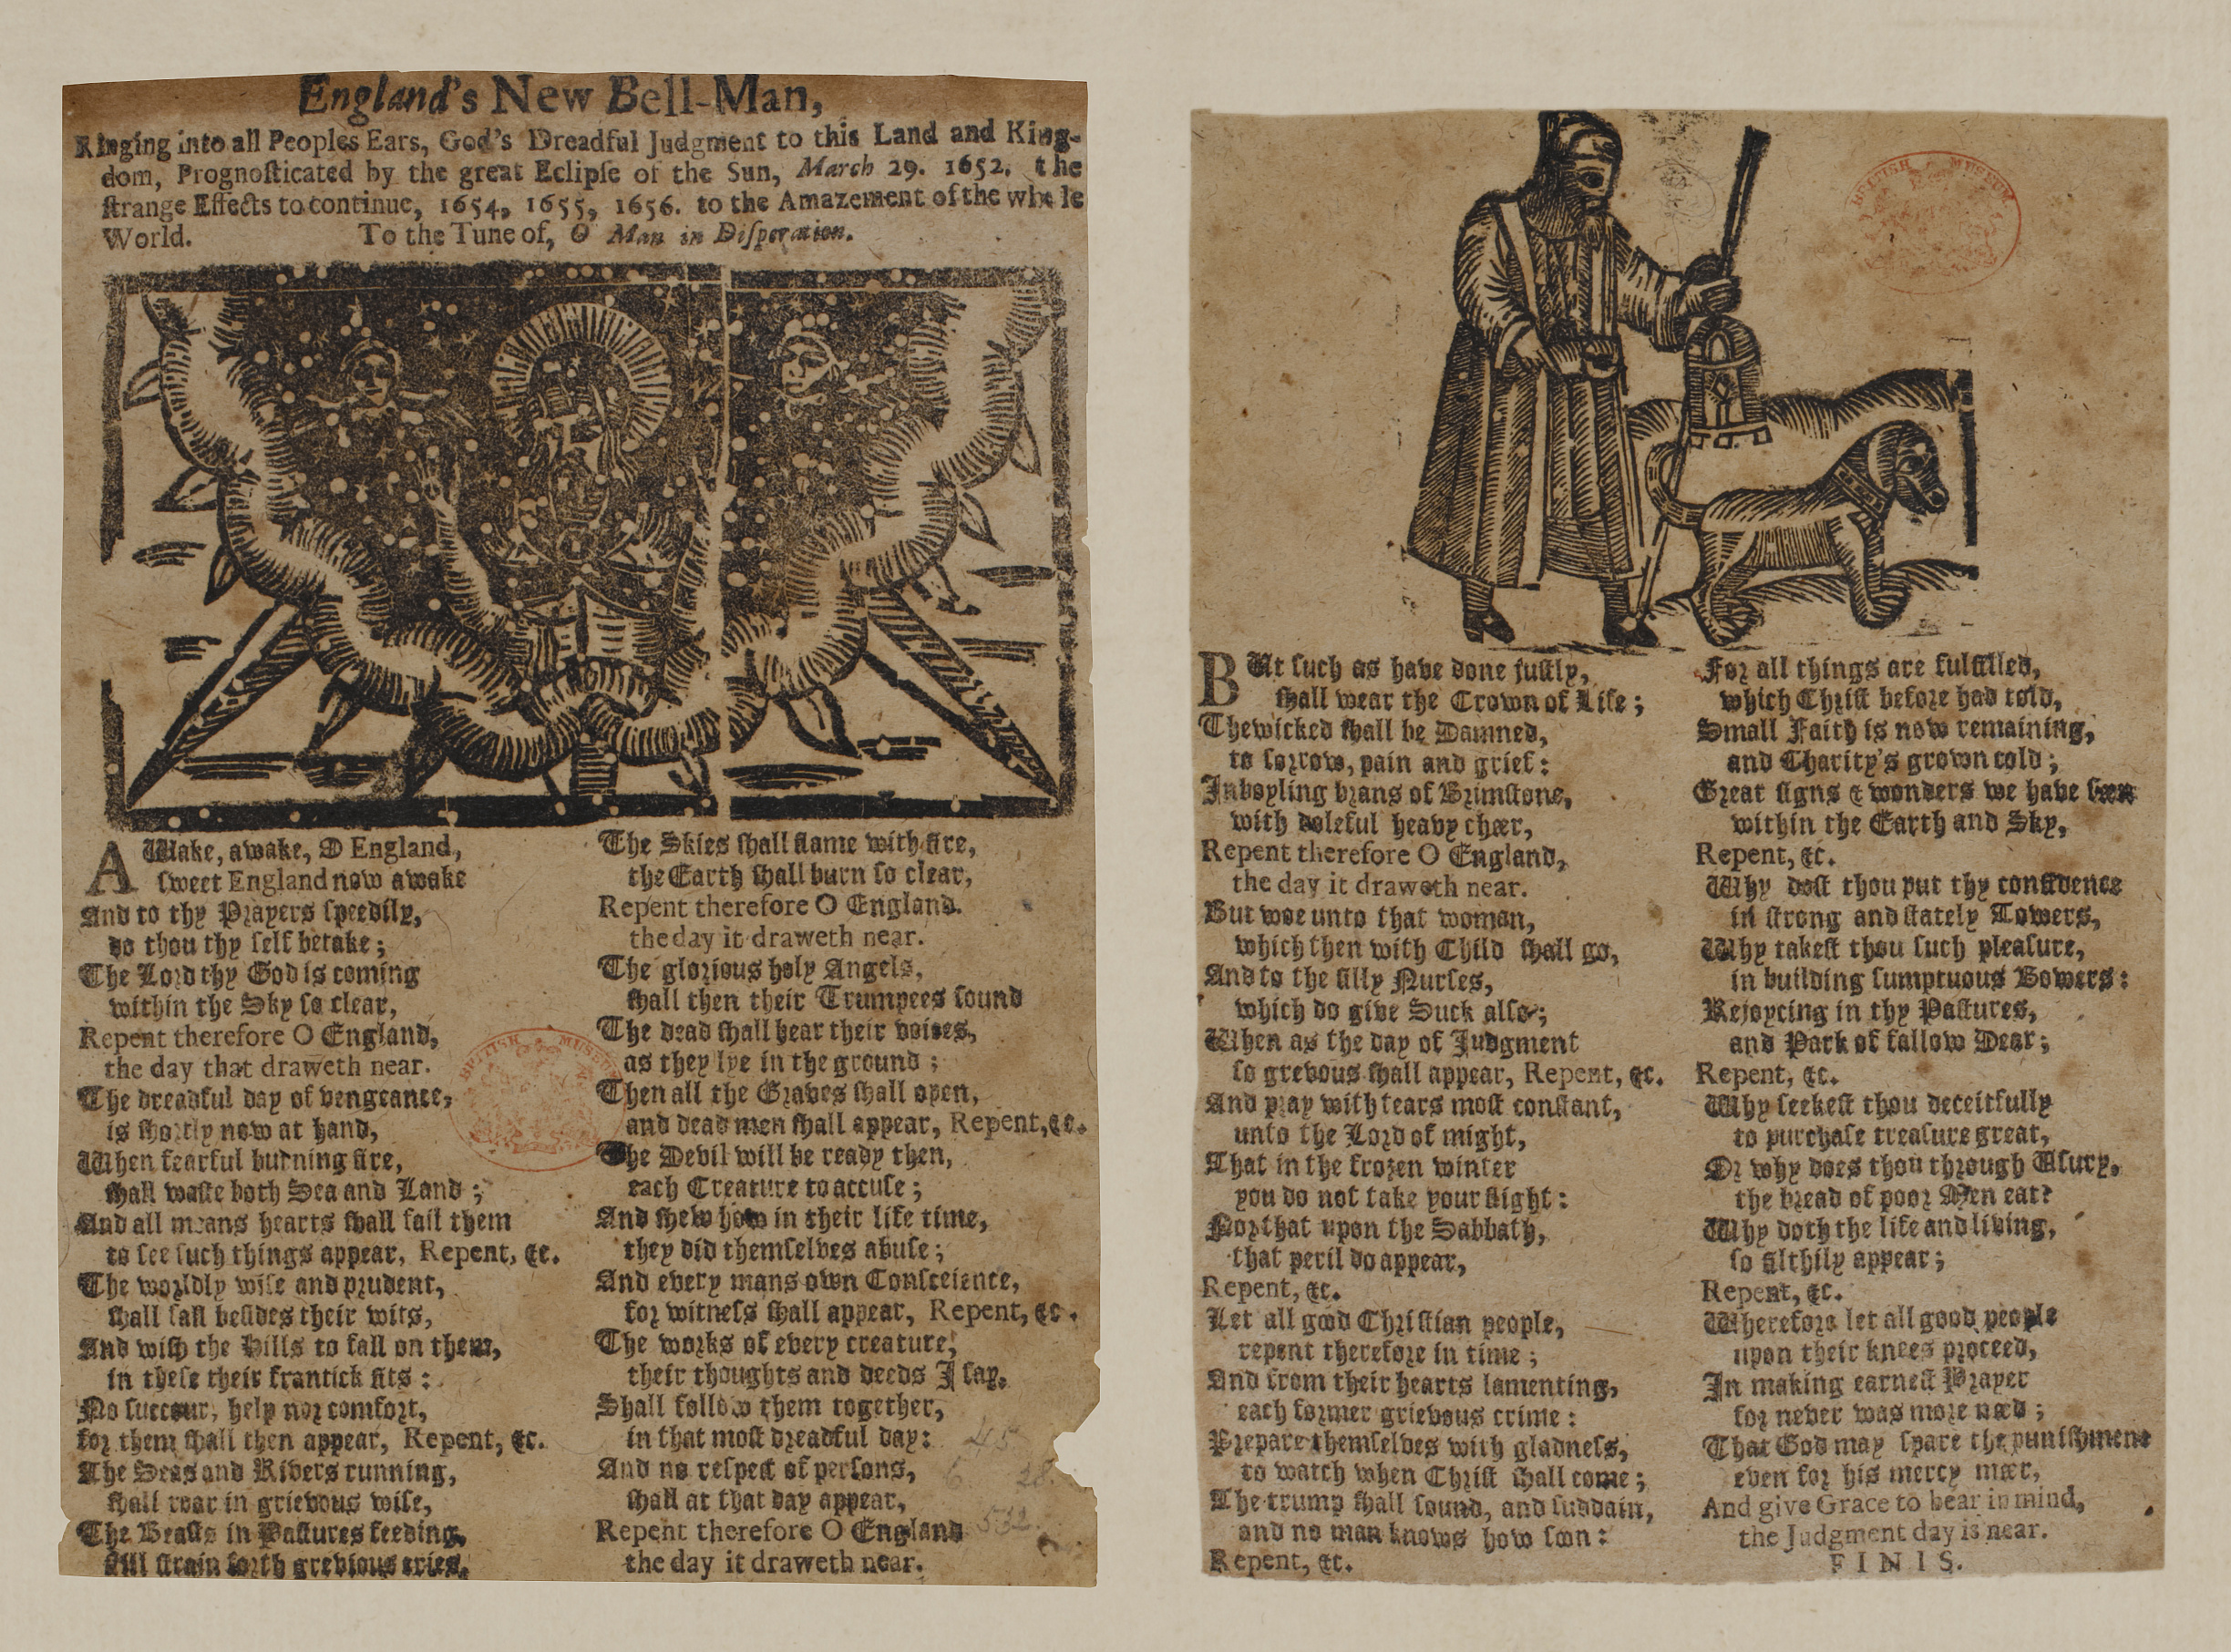 England's New Bell-Man,
Ringing into all Peoples Ears, God's Dreadful Judgment to this Land and King-
dom, Prognosticated by the great Eclipse of the Sun, March 29. 1652. the
strange Effects to continue, 1654, 1655, 1656. to the Amazement of the whole
World. To the Tune of, O Man in Disperation.
AWake, awake, O England,
sweet England now awake
And to thy Prayers speedily,
do thou thy self betake;
The Lord thy God is coming
within the Sky so clear,
Repent therefore O England,
the day that draweth near.
The dreadful day of vengeance,
is shortly now at hand,
When fearful burning fire,
shall waste both Sea and Land;
And all means hearts shall fail them
to see such things appear, Repent, &c.
The worldly wise and prudent,
shall fall besides their wits,
And wish the Hills to fall on them,
in these their frantick fits:
No succour, help nor comfort,
for them shall then appear, Repent, &c.
The Seas and Rivers running,
shall roar in grievous wise,
The Beasts in Pastures feeding,
still strain forth grevious cries,
The Skies shall flame with fire,
the Earth shall burn so clear,
Repent therefore O England.
the day it draweth near.
The glorious holy Angels,
shall then their Trumpees sound
The dead shall hear their voises,
as they lye in the ground;
Then all the Graves shall open,
and dead men shall appear, Repent, &c.
The Devil will be ready then,
each Creature to accuse;
And shew how in their life time,
they did themselves abuse;
And every mans own Consceience,
for witness shall appear, Repent, &c.
The works of every creature,
their thoughts and deeds I say,
Shall follow them together,
in that most dreadful day:
And no respect of persons,
shall at that day appear,
Repent therefore O England
the day it draweth near.
BRITISH MUSEUM
BUt such as have done justly,
shall wear the Crown of Life;
The wicked shall be Damned,
to sorrow, pain and grief:
In boyling brans of Brimstone,
with doleful heavy cheer,
Repent therefore O England,
the day it draweth near.
But woe unto that woman,
which then with Child shall go,
And to the silly Nurses,
which do give Suck also;
When as the day of Judgment
so grevous shall appear, Repent, &c.
And pray with tears most constant,
unto the Lord of might,
That in the frozen winter
you do not take your flight:
Nor that upon the Sabbath,
that peril do appear,
Repent, &c.
Let all good Christian people,
repent therefore in time;
And from their hearts lamenting,
each former grievous crime:
Prepare themselves with gladness,
to watch when Christ shall come;
The trump shall sound, and suddain,
and no man knows how soon:
Repent, &c.
For all things are fulfilled,
which Christ before had told,
Small Faith is now remaining,
and Charity's grown cold;
Great signs & wonders we have seen
within the Earth and Sky,
Repent, &c.
Why dost thou put thy confidence
in strong and stately Towers,
Why takest thou such pleasure,
in building sumptuous Bowers:
Rejoycing in thy Pastures,
and Park of fallow Dear;
Repent, &c.
Why seekest thou deceitfully
to purchase treasure great,
Or why does thou through Usury,
the bread of poor Men eat?
Why doth the life and living,
so filthily appear;
Repent, &c.
Wherefore let all good people
upon their knees proceed,
In making earnest Prayer
for never was more need;
That God may spare the punishment
even for his mercy meer,
And give Grace to bear in mind,
the Judgment day is near.
FINIS.
BRITISH MUSEUM